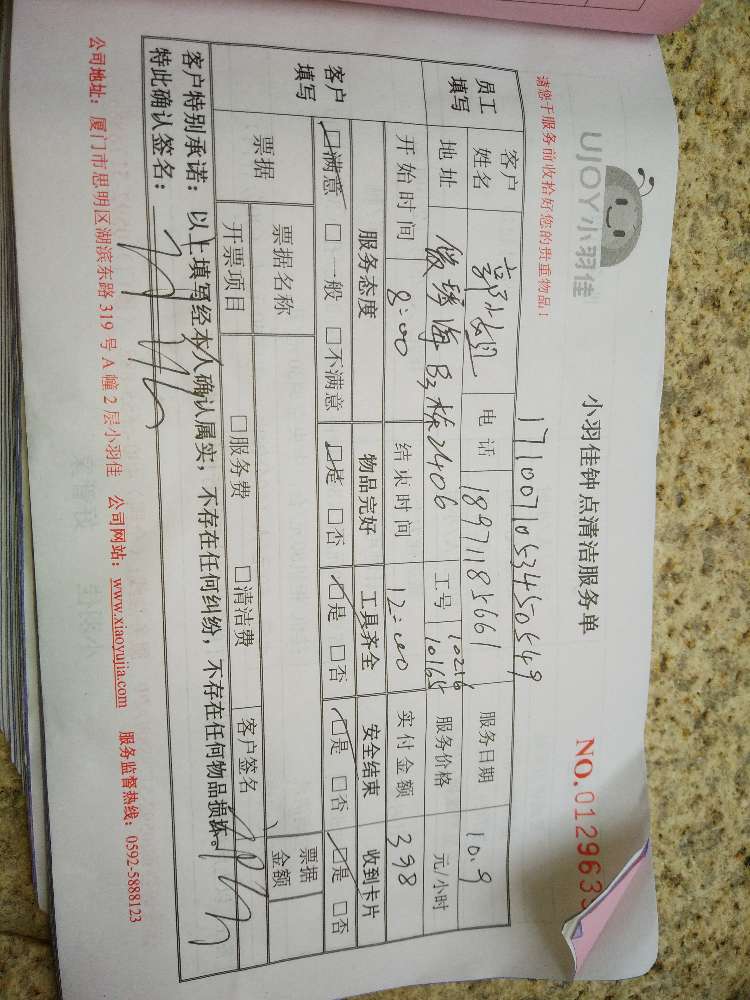 UJOY小羽佳
小羽佳钟点清洁服务单
NO.012963
请您于服务前收拾好您的贵重物品！
171007105345054９
员工填写
客户姓名
电话 18971185661
服务日期 10.9
地址 B3栋2406
工号 10216 10165
服务价格 元/小时
开始时间 8:00
结束时间 12:00
实付金额 398
客户填写
服务态度 物品完好 工具齐全 安全结束 收到卡片
□满意 □一般 □不满意 □是 □否 □是 □否 □是 □否 □是 □否
票据
票据名称
票据金额
开票项目 □服务费 □清洁费 客户签名
客户特别承诺：以上填写经本人确认属实，不存在任何纠纷，不存在任何物品损坏。
特此确认签名：
公司地址：厦门市思明区湖滨东路 319 号 A 幢 2 层小羽佳 公司网站：www.xiaoyujia.com 服务监督热线：0592-5888123